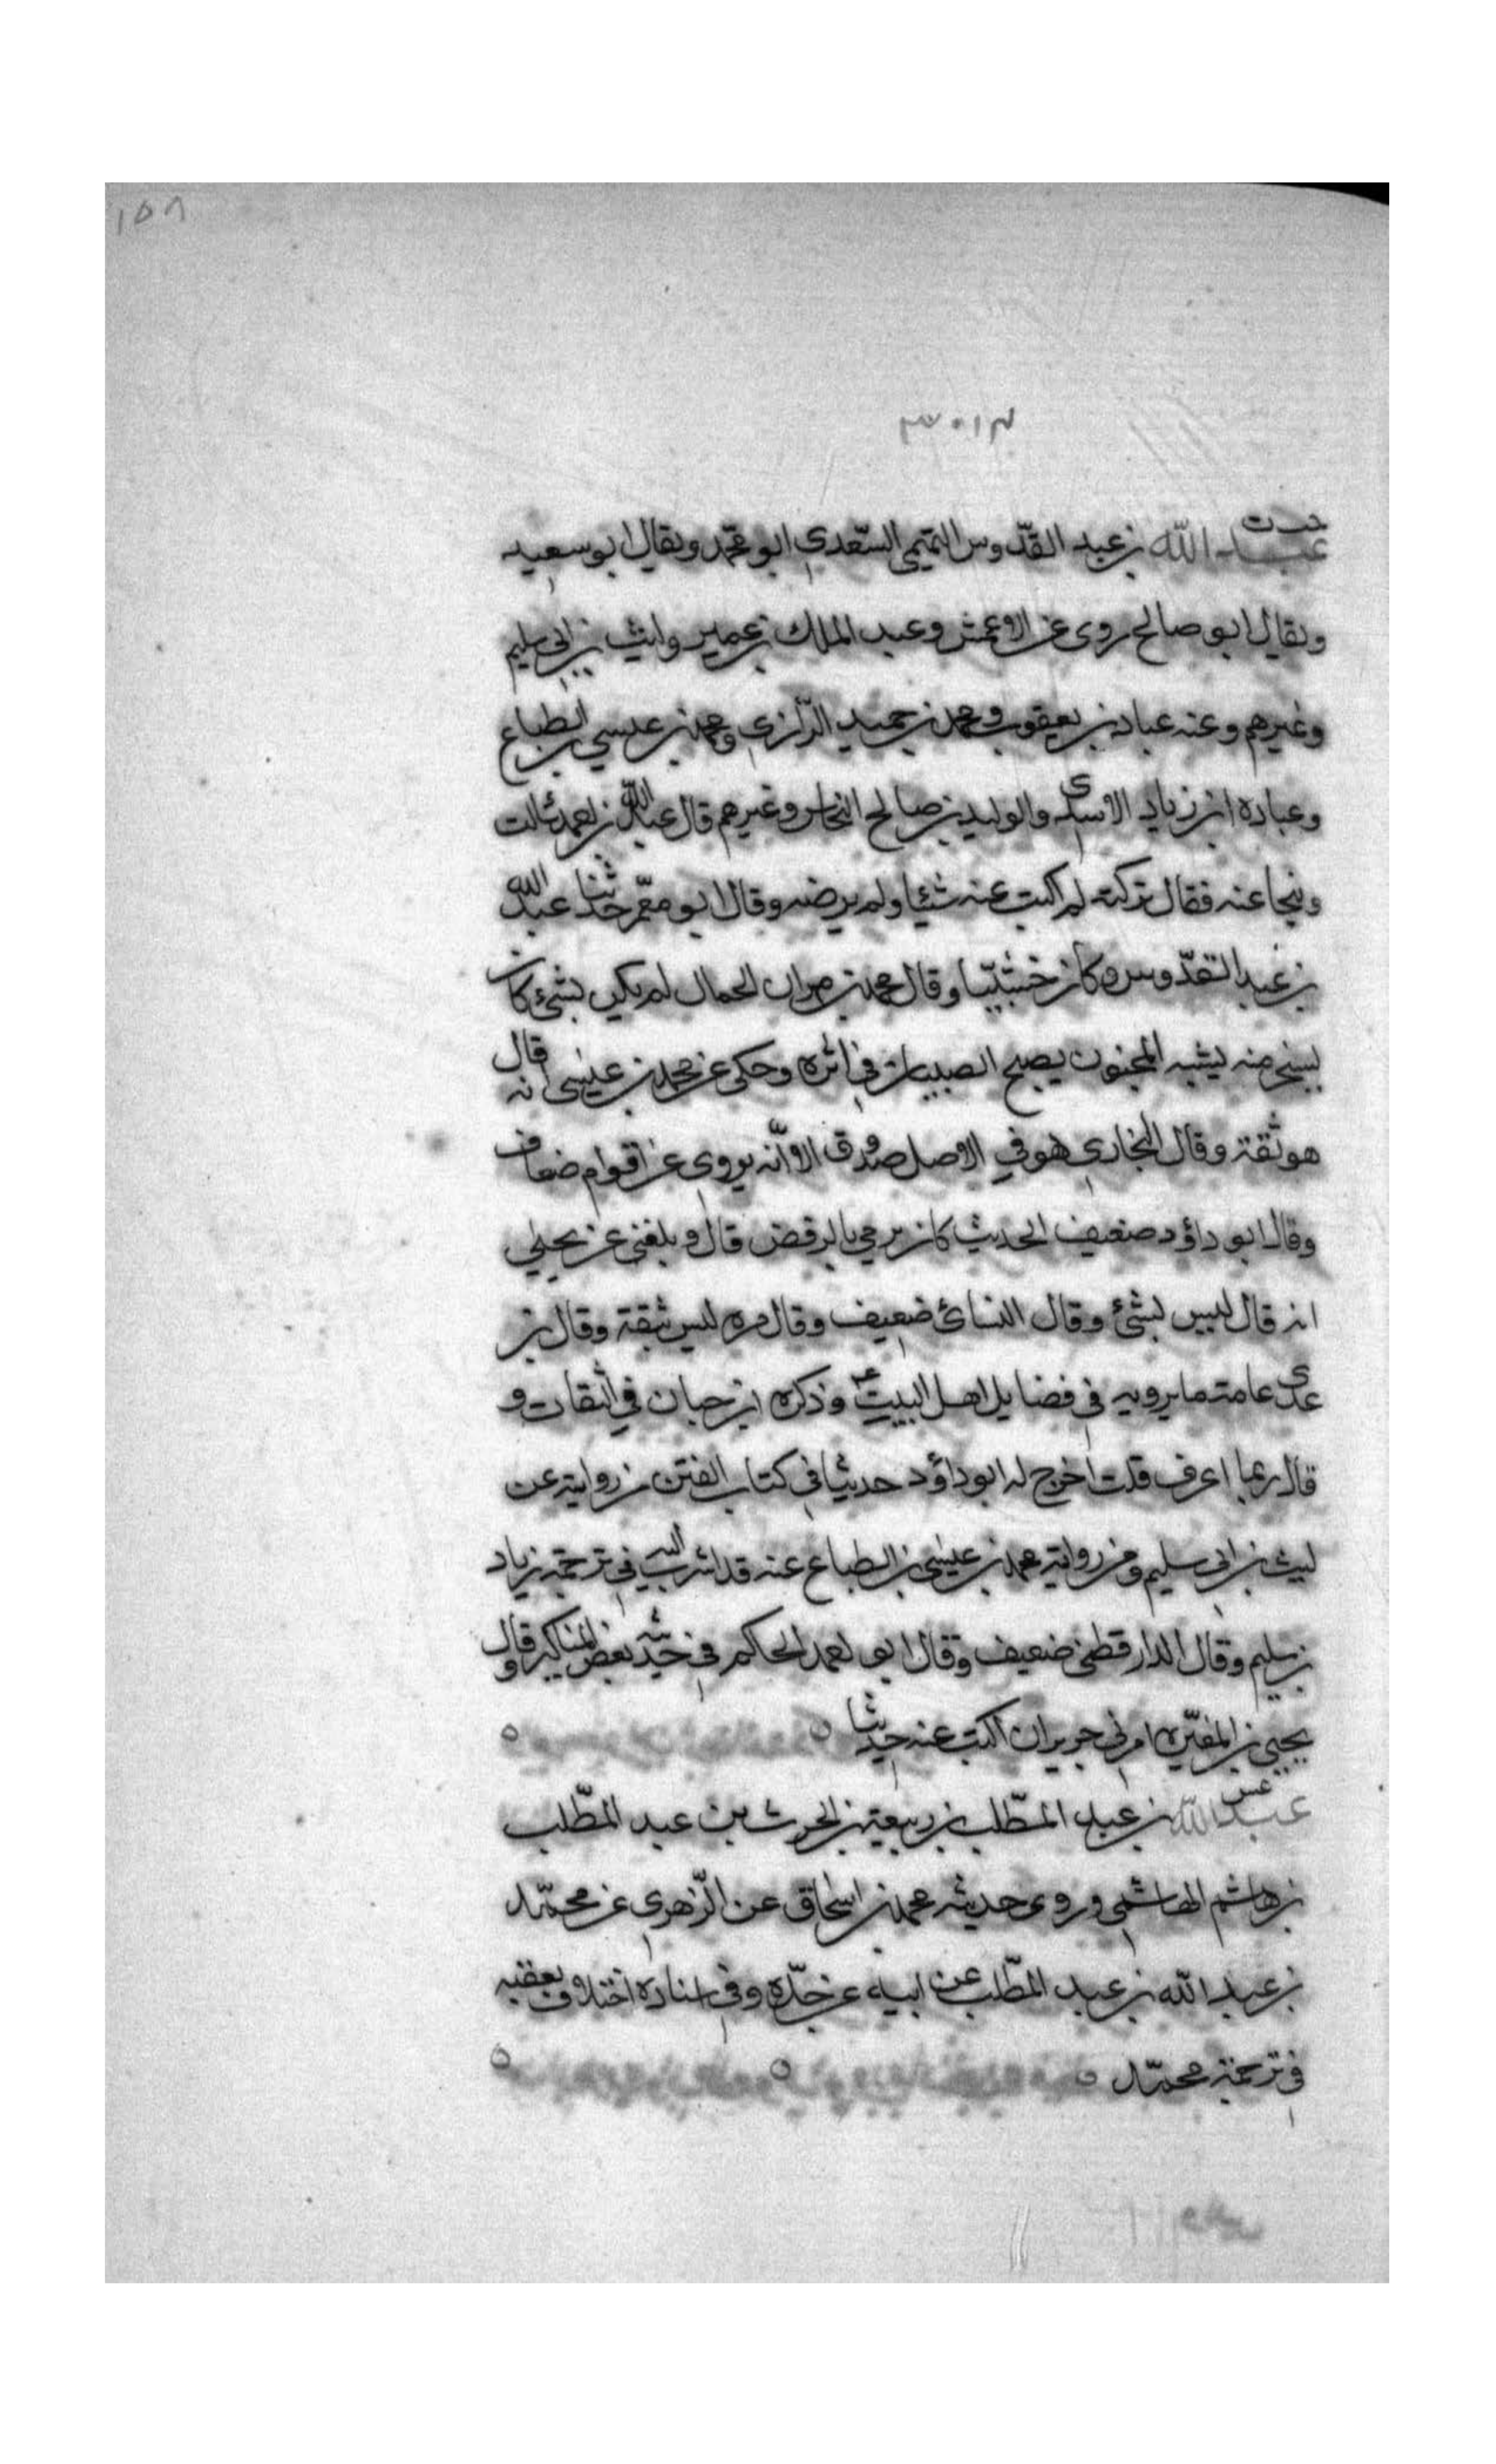 ١٥٨
خت ت
عبد الله بن عبد القدّوس التميمى السّعدي ابو محمّد ويقال ابو سعيد
ويقال ابو صالح روى عن الاعمش وعبد الملك بن عمير وليث بن ابي سليم
وغيرهم وعنه عباد بن يعقوب ومحمد بن حميد الرّازي ومحمد بن عيسي بن الطباع
وعباده ابن زياد الاسدى والوليد بن صالح النحاس وغيرهم قال عبد الله بن احمد سالت
عنه فقال تركته لم اكتب عنه شئيا ولم يرضه وقال ابو معمّر حدثنا عبد الله
بن عبد القدّوس وكان خشبيّا وقال محمد بن مهران الحمال لم يكن بشئ كان
يسخر منه يشبه المجنون يصيح الصبيان في اثره وحكى عن محمد بن عيسى انه قال
هو ثقة وقال البخارى هو في الاصل صدوق الا انّه يروى عن اقوام ضعاف
وقال ابو داؤد ضعيف الحديث كان يرمي بالرفض قال وبلغنى عن يحيي
انه قال ليس بشئ وقال النسائ ضعيف وقال مره ليس بثقة وقال بن
عدى عامة ما يرويه في فضايل اهل البيت وذكره ابن حبان في الثقات و
قال ربما اعرف قلت اخرج له ابو داؤد حديثا في كتاب الفتن من روايته عن
ليث بن ابي سليم ومن رواية محمد بن عيسى بن الطباع عنه قد اشرت اليه في ترجمة زياد
بن سليم وقال الدارقطنى ضعيف وقال ابو احمد الحاكم في حديثه بعض المناكير وقال
يحيي بن المغيره امرني جرير ان اكتب عنه حديثا
عس
عبد الله بن عبد المطّلب بن ربيعة بن الحرث بن عبد المطّلب
بن هاشم الهاشمي وروى حديثه محمد بن اسحاق عن الزّهرى عن محمّد
بن عبد الله بن عبد المطّلب عن ابيه عن جدّه وفي اسناده اختلاف بعقبه
في ترجمة محمّد